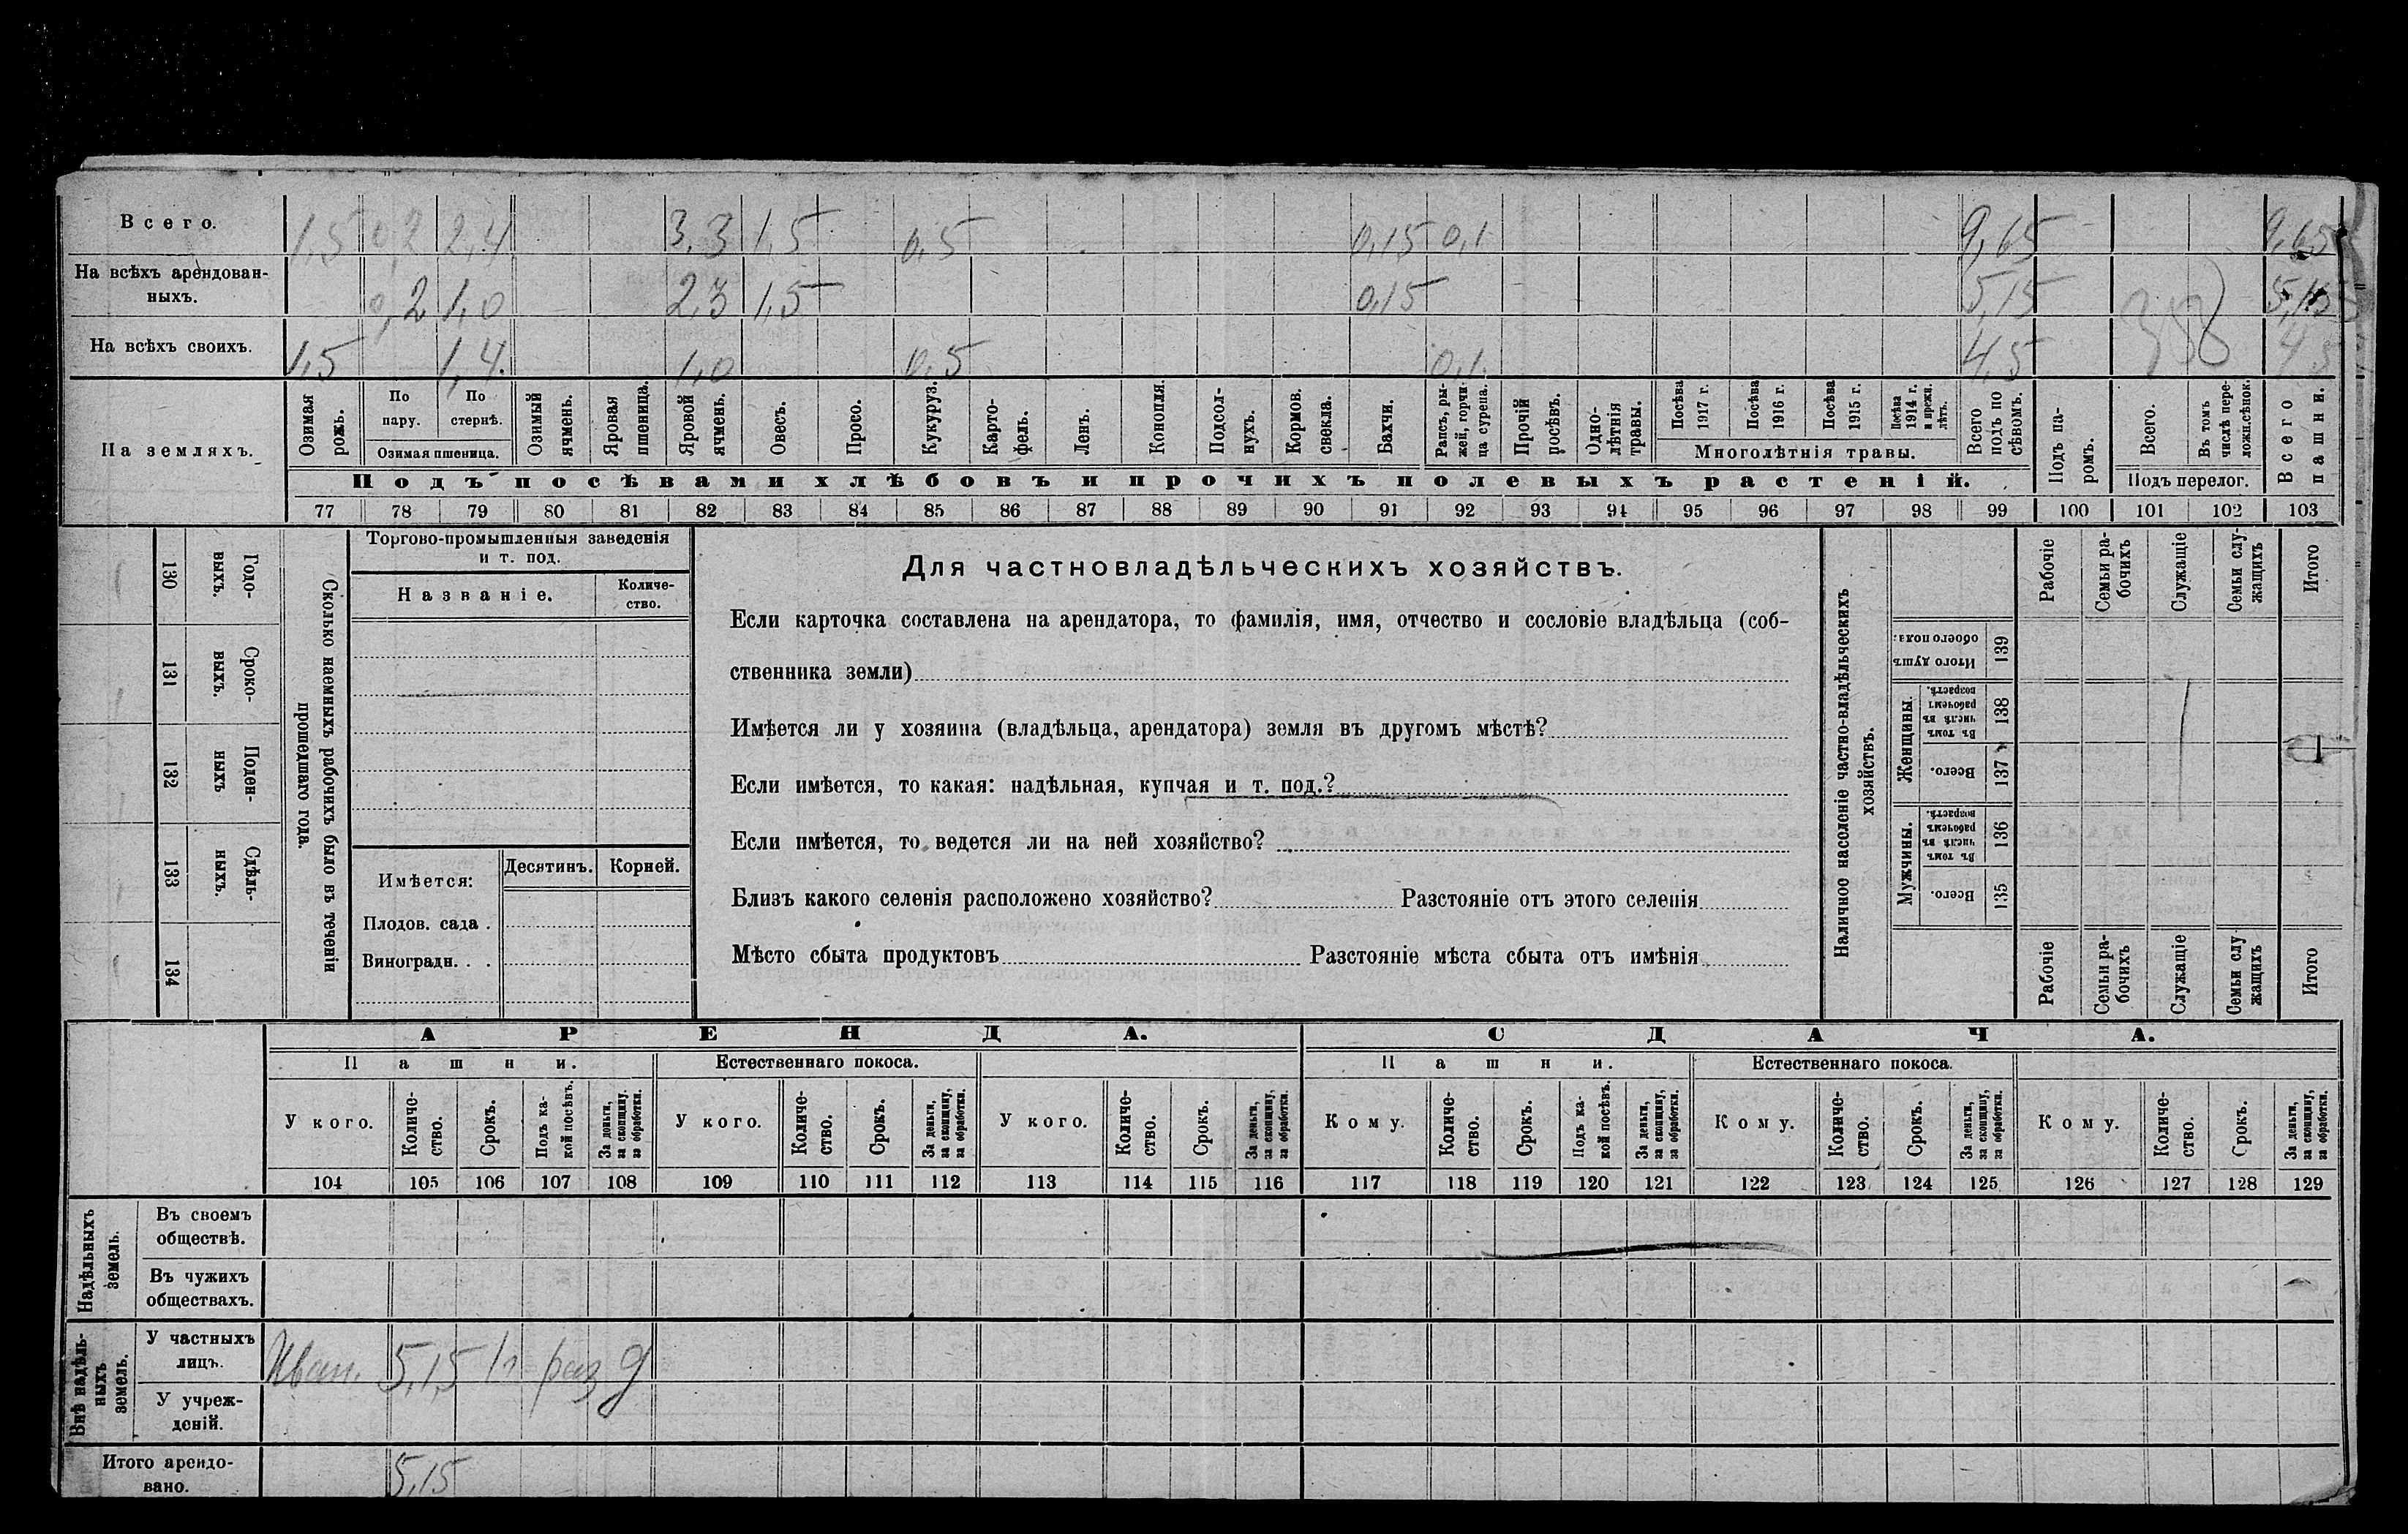 Всего. 1,5 0,2 2,4 3,3 1,5 0,5 0,15 0,1 9,65 9,65
На всѣхъ арендован-
ныхъ. 0,2 1,0 2,3 1,5 0,15 5,15 5,15
На всѣхъ своихъ. 1,5 1,4 1,0 0,5 0,1 4,5 4,5
На земляхъ.
Озимая рожь.
По пару.
По стернѣ.
Озимая пшеница.
Озимый ячмень.
Яровая пшеница.
Яровой ячмень.
Овесъ.
Просо.
Кукуруз.
Карто-
фель.
Ленъ.
Конопля.
Подсол-
нухъ.
Кормов. свекла.
Бахчи.
Рапсъ, ры-
жей, горчи-
ца сурепа.
Прочій посѣвъ.
Одно-
лѣтнія травы.
Посѣва 1917 г.
Посѣва 1916 г.
Посѣва 1915 г.
Посѣва 1914 г. и прежн. лѣтъ.
Многолѣтнія травы.
Всего подъ по
сѣвомъ.
Подъ па-
ромъ.
Всего.
Въ томъ числѣ пере-
ложн.сѣнок.
Подъ перелог.
Всего пашни.
Подъ посѣвами хлѣбовъ и прочихъ полевыхъ растеній.
77 78 79 80 81 82 83 84 85 86 87 88 89 90 91 92 93 94 95 96 97 98 99 100 101 102 103
130 Годо-
выхъ.
131 Сроко-
выхъ.
132 Поден-
ныхъ
133 Сдѣль-
ныхъ.
134
Сколько наемныхъ рабочихъ было въ теченіи
прошедшаго года.
Торгово-промышленныя заведенія
и т. под.
Названіе.
Количе-
ство.
Имѣется:
Десятинъ. Корней.
Плодов. сада .
Виноградн. . .
Для частновладѣльческихъ хозяйствъ.
Если карточка составлена на арендатора, то фамилія, имя, отчество и сословіе владѣльца (соб-
ственника земли)
Имѣется ли у хозяина (владѣльца, арендатора) земля въ другомъ мѣстѣ?
Если имѣется, то какая: надѣльная, купчая и т. под.?
Если имѣется, то ведется ли на ней хозяйство?
Близъ какого селенія расположено хозяйство? Разстояніе отъ этого селенія
Мѣсто сбыта продуктовъ Разстояніе мѣста сбыта отъ имѣнія
Наличное населеніе частно-владѣльческихъ
хозяйствъ.
Рабочіе
Семьи ра-
бочихъ
Служащіе
Семьи слу-
жащихъ
Итого
Итого душъ обоего пола. 139
Женщины.
Въ томъ числѣ въ рабочемъ возрастѣ. 138
Всего. 137
Мужчины.
Въ томъ числѣ въ рабочемъ возрастѣ. 136
Всего. 135
Рабочіе
Семьи ра-
бочихъ
Служащіе
Семьи слу
жащихъ
Итого
АРЕНДА. СДАЧА.
Пашни. Естественнаго покоса. Пашни. Естественнаго покоса.
У кого.
Количе-
ство.
Срокъ.
Подъ ка-
кой посѣвъ.
За деньги, за скопщину, за обработки.
У кого.
Количе-
ство.
Срокъ.
За деньги, за скопщину, за обработки.
У кого.
Количе-
ство.
Срокъ.
За деньги, за скопщину, за обработки.
Кому.
Количе-
ство.
Срокъ.
Подъ ка-
кой посѣвъ.
За деньги, за скопщину, за обработки.
Кому.
Количе-
ство.
Срокъ.
За деньги, за скопщину, за обработки.
Кому.
Количе-
ство.
Срокъ.
За деньги, за скопщину, за обработки.
104 105 106 107 108 109 110 111 112 113 114 115 116 117 118 119 120 121 122 123 124 125 126 127 128 129
Надѣльныхъ земель.
Въ своемъ
обществѣ.
Въ чужихъ
обществахъ.
Внѣ надѣль-
ныхъ земель.
У частныхъ
лицъ. Иван. 5,15 1 г раз д
У учреж-
деній.
Итого арендо-
вано. 5,15